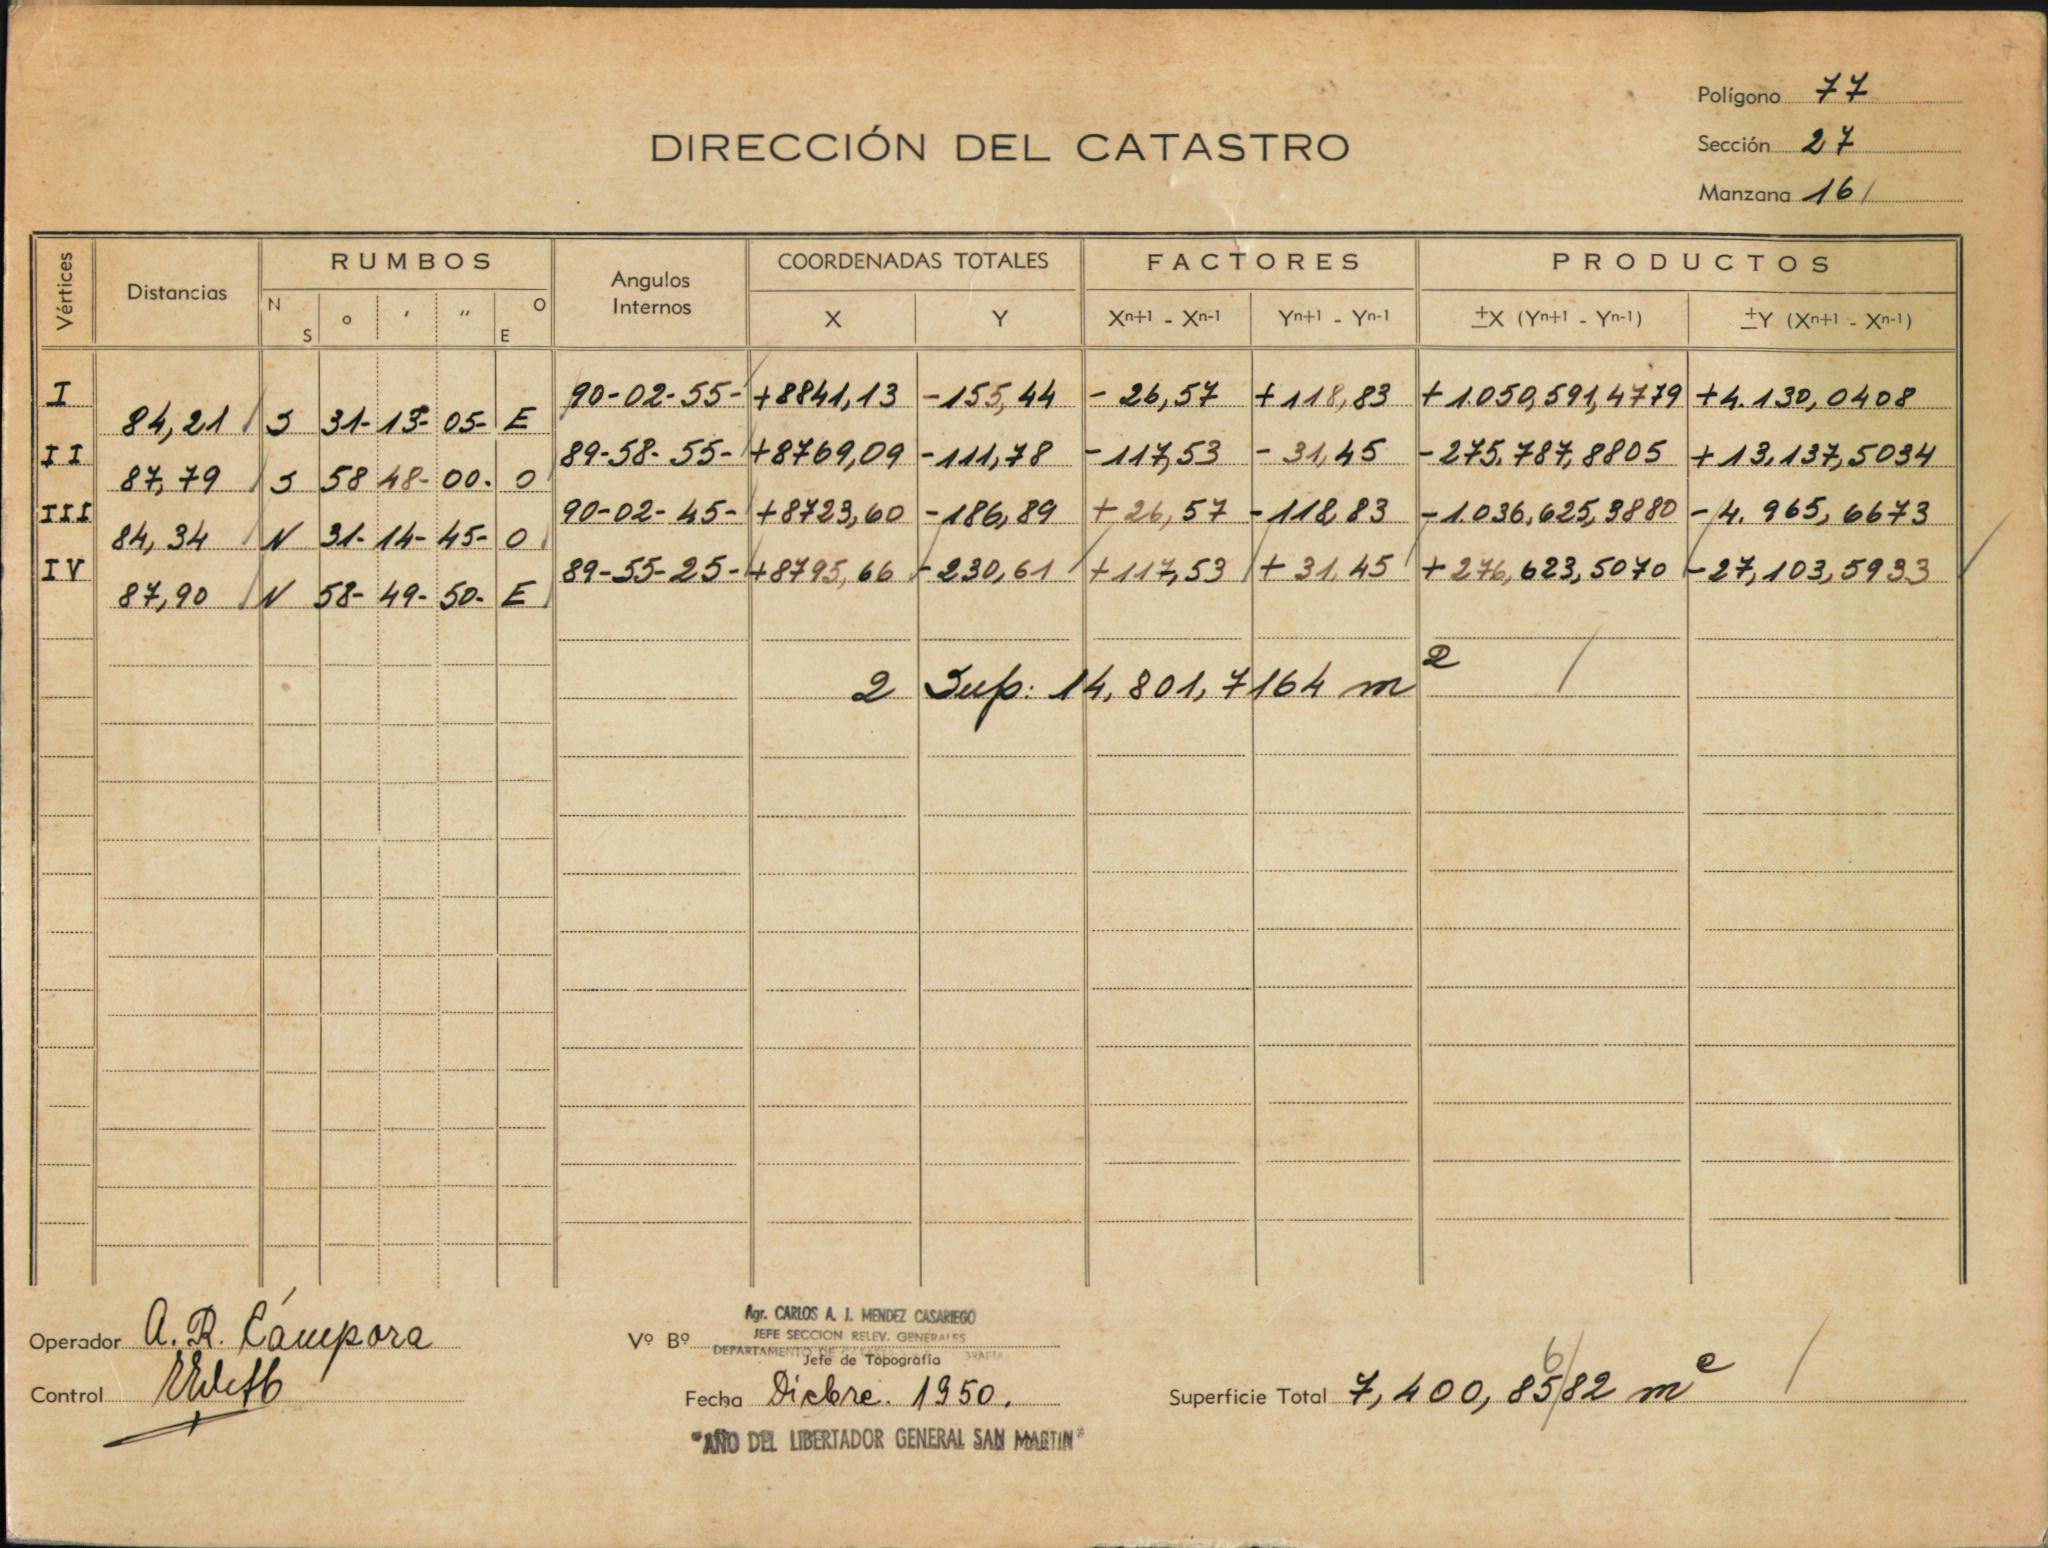 Polígono 77
DIRECCIÓN DEL CATASTRO
Sección 27
Manzana 16
Vértices Distancias RUMBOS Angulos Internos COORDENADAS TOTALES FACTORES PRODUCTOS
N S ° ' " O E X Y Xⁿ⁺¹ - Xⁿ⁻¹ Yⁿ⁺¹ - Yⁿ⁻¹ ±X (Yⁿ⁺¹ - Yⁿ⁻¹) ±Y (Xⁿ⁺¹ - Xⁿ⁻¹)
I 90-02-55- +8841,13 -155,44 - 26,57 +118,83 +1.050,591,4779 +4.130,0408
84,21 S 31- 13- 05- E
II 89-58-55- +8769,09 -111,78 -117,53 - 31,45 -275.787,8805 +13.137,5034
87,79 S 58 48- 00. O
III 90-02-45- +8723,60 -186,89 +26,57 -118,83 -1.036,625,3880 -4.965,6673
84,34 N 31- 14- 45- O
IV 89-55-25- +8795,66 -230,61 +117,53 + 31,45 +276,623,5070 -27,103,5933
87,90 N 58- 49- 50- E
2 Sup: 14,801,7164 m²
Agr. CARLOS A. J. MENDEZ CASARIEGO
JEFE SECCION RELEV. GENERALES
Operador A. R. Cámpora Vº Bº
DEPARTAMENTO DE
Jefe de Topografía
6
Control Fecha Dicbre. 1950. Superficie Total 7,400,8582 m²
"AÑO DEL LIBERTADOR GENERAL SAN MARTIN"